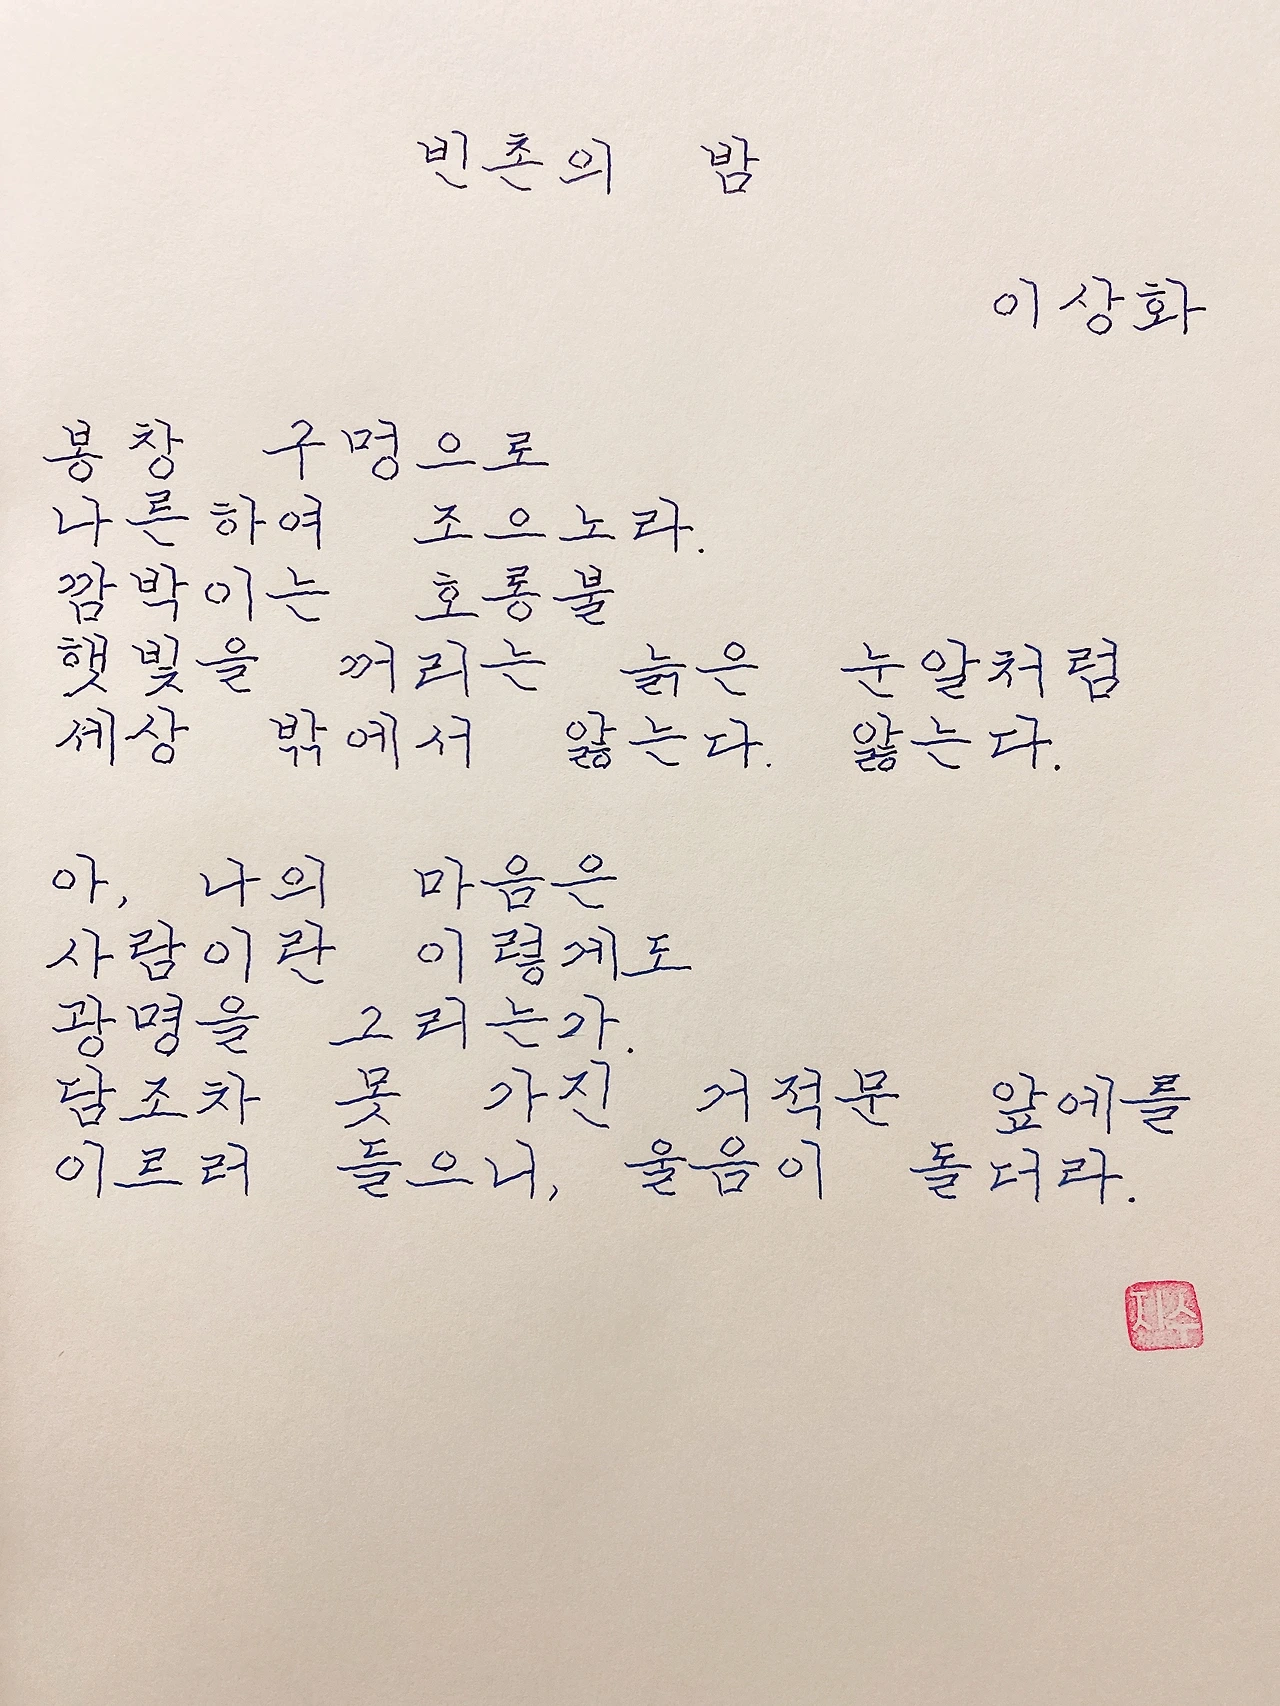 빈촌의 밤
이상화
봉창 구멍으로
나른하여 조으노라.
깜박이는 호롱불
햇빛을 꺼리는 늙은 눈알처럼
세상 밖에서 앓는다. 앓는다.
아, 나의 마음은
사람이란 이렇게도
광명을 그리는가.
담조차 못 가진 거적문 앞에를
이르러 들으니, 울음이 돌더라.